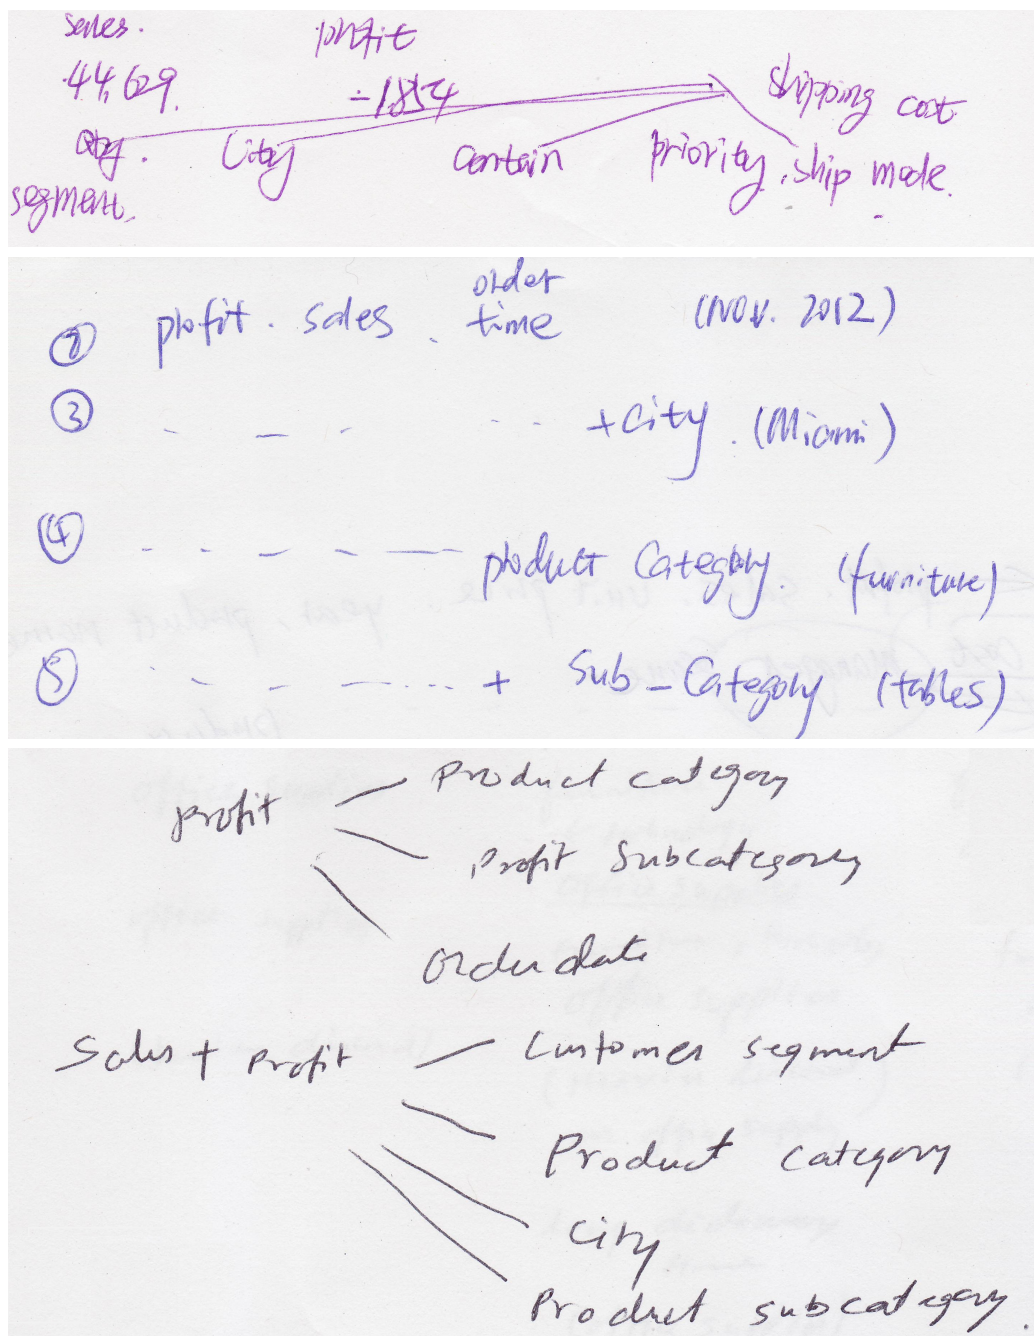 sales. profit
44,629. -1854 shipping cost
Qty. City contain priority. ship mode.
segment.
② profit. sales. order time (Nov. 2012)
③ - - - - - - + City. (Miami)
④ - - - - — product Category. (furniture)
⑤ - - - - ... + Sub-Category (tables)
Profit Product category
Profit Subcategory
Order date
Sales + Profit Customer segment
Product category
City
Product subcategory.